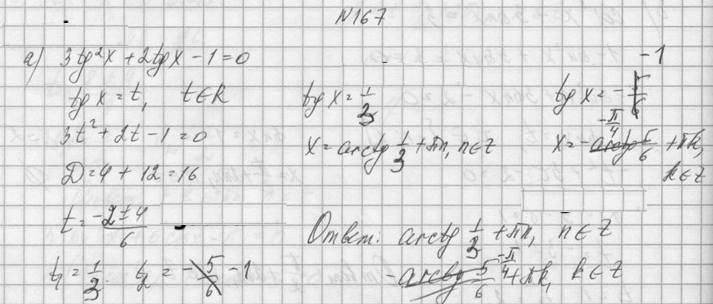 N167
а) 3tg²x + 2tgx - 1 = 0
tgx = t, t∈R
3t² + 2t - 1 = 0
D = 4 + 12 = 16
t = (-2 ± 4)/6
t₁ = 1/3. t₂ = -5/6 -1
tgx = 1/3
x = arctg 1/3 + πn, n∈Z
tgx = -5/6 -1
x = -arctg 5/6 -π/4 + πk,
k∈Z
Ответ: arctg 1/3 + πn, n∈Z
-arctg 5/6 -π/4 + πk, k∈Z